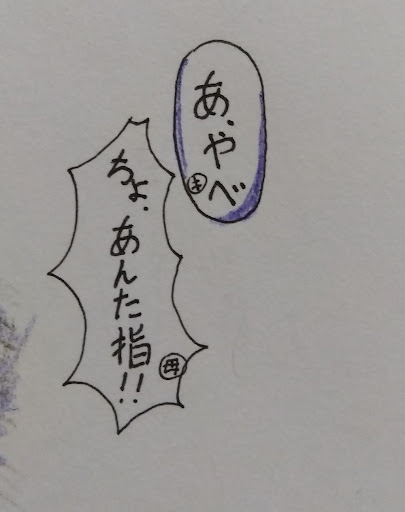 あ、やべ
ちょ、あんた指!!
母